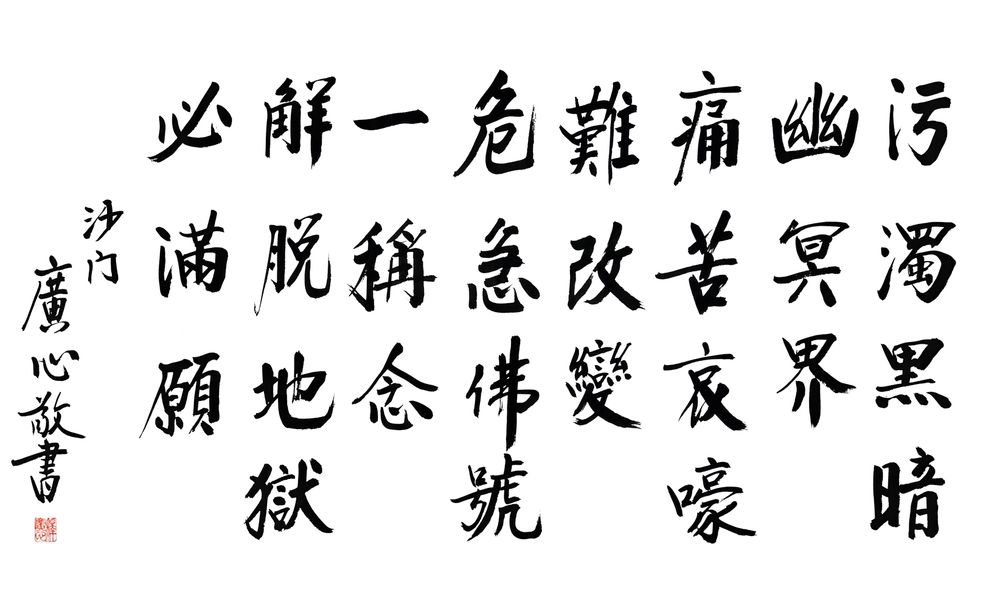 污濁黑暗
幽冥界
痛苦哀嚎
難改變
危急佛號
一稱念
解脱地獄
必滿願
沙门
廣心敬書